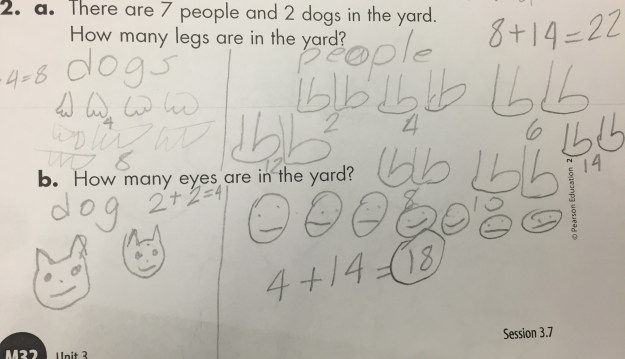 2. a. There are 7 people and 2 dogs in the yard.
How many legs are in the yard?
8+14=22
4=8 dogs
people
2 4 6
4
8
12
14
b. How many eyes are in the yard?
8 10
dog 2+2=4
4+14=18
© Pearson Education 2
Session 3.7
M32 Unit 3